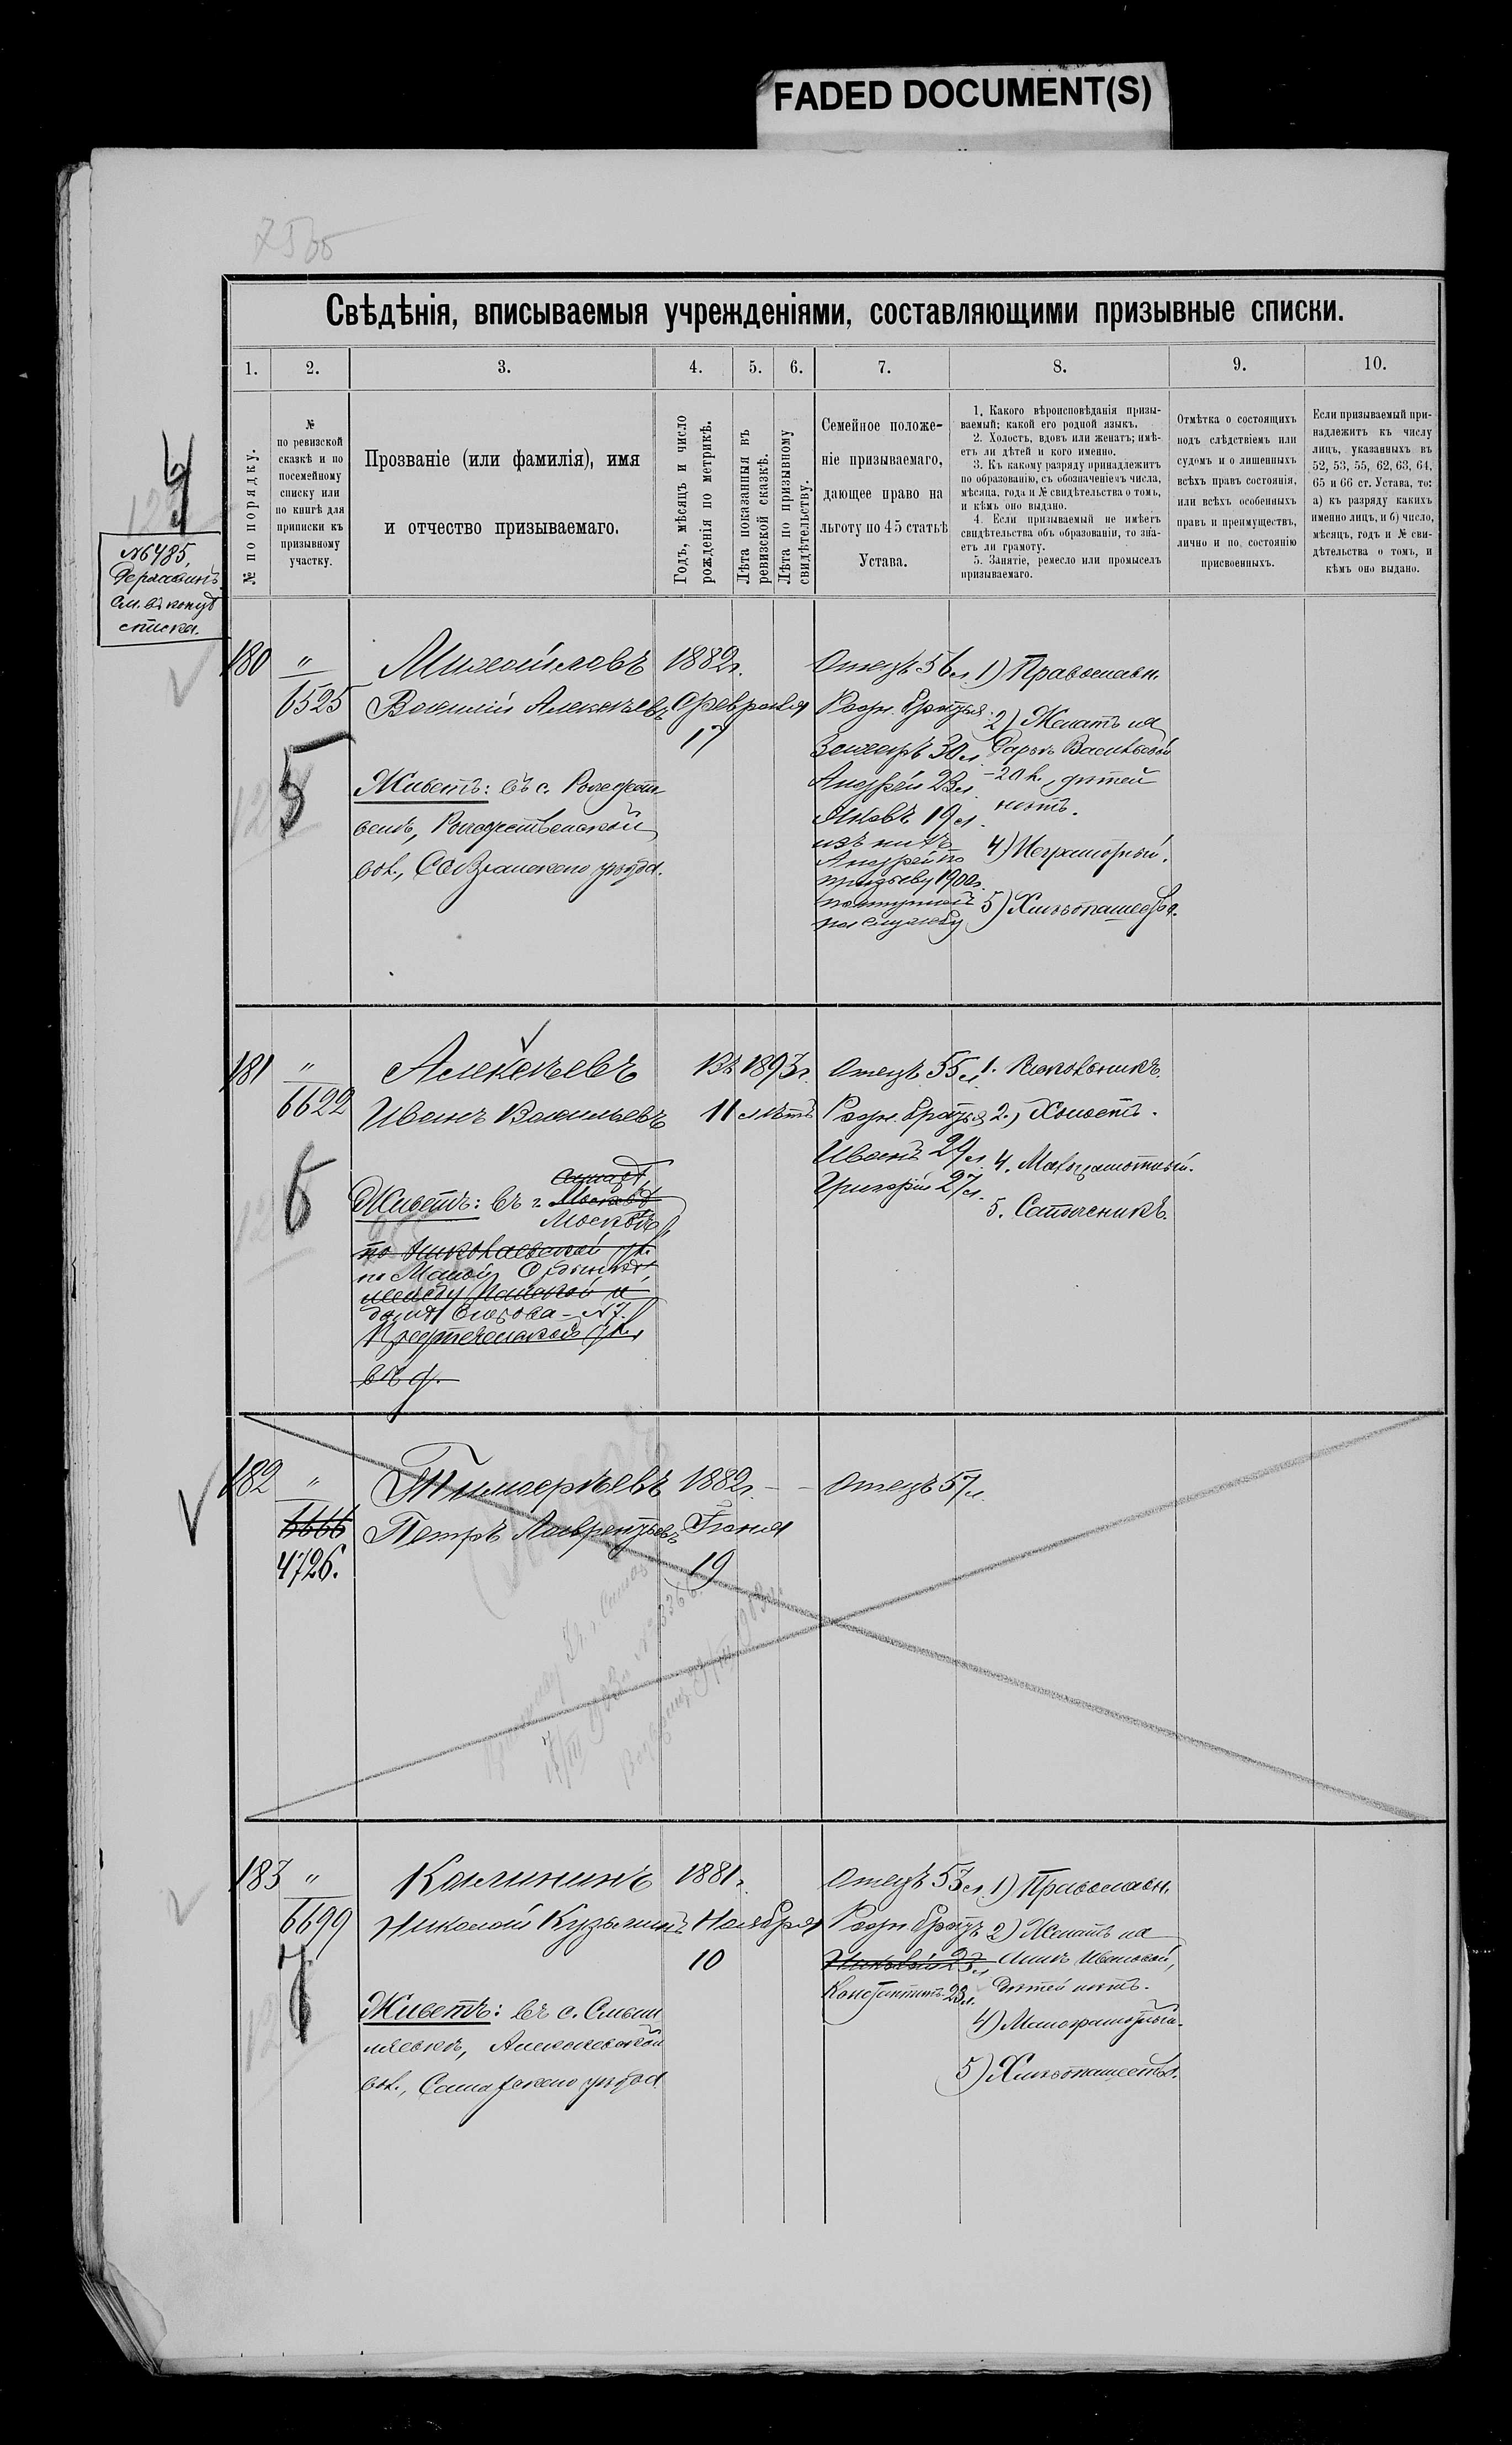 FADED DOCUMENT(S)
Свѣдѣнія, вписываемыя учрежденіями, составляющими призывные списки.
1. 2. 3. 4. 5. 6. 7. 8. 9. 10.
№ по порядку.
№
по ревизской
сказкѣ и по
посемейному
списку или
по книгѣ для
приписки къ
призывному
участку.
Прозваніе (или фамилія), имя
и отчество призываемаго.
Годъ, мѣсяцъ и число
рожденія по метрикѣ.
Лѣта показанныя въ
ревизской сказкѣ.
Лѣта по призывному
свидѣтельству.
Семейное положе-
ніе призываемаго,
дающее право на
льготу по 45 статьѣ
Устава.
1. Какого вѣроисповѣданія призы-
ваемый; какой его родной языкъ.
2. Холостъ, вдовъ или женатъ; имѣ-
етъ ли дѣтей и кого именно.
3. Къ какому разряду принадлежитъ
по образованію, съ обозначеніемъ числа,
мѣсяца, года и № свидѣтельства о томъ,
и кѣмъ оно выдано.
4. Если призываемый не имѣетъ
свидѣтельства объ образованіи, то зна-
етъ ли грамоту.
5. Занятіе, ремесло или промыселъ
призываемаго.
Отмѣтка о состоящихъ
подъ слѣдствіемъ или
судомъ и о лишенныхъ
всѣхъ правъ состоянія,
или всѣхъ особенныхъ
правъ и преимуществъ,
лично и по состоянію
присвоенныхъ.
Если призываемый при-
надлежитъ къ числу
лицъ, указанныхъ въ
52, 53, 55, 62, 63, 64,
65 и 66 ст. Устава, то:
а) къ разряду какихъ
именно лицъ, и б) число,
мѣсяцъ, годъ и № сви-
дѣтельства о томъ, и
кѣмъ оно выдано.
4
№6485,
См. въ концѣ
списка.
180 "
6525
5
Михайловъ
Василій Алексѣевъ
Живетъ: въ с. Рождест-
венѣ, Рождественской
вол., Сызранскаго уѣзда.
1882 г.
Февраля
17
Отецъ 56 л.
Родн. братья:
30 л.
Андрей 23 л.
Яковъ 19 л.
изъ нихъ
Андрей по
призыву 1900 г.
поступилъ
на службу
1) Православн.
2) Женатъ на
Дарьѣ Васильевой
-20 л., дѣтей
нѣтъ.
4) Неграмотный.
5) Хлѣбопашество.
181 "
6622
6
Алексѣевъ
Иванъ Васильевъ
Живетъ: въ г.
Москвѣ
по Николаевской ул.
по Малой Ордынкѣ
между и
домъ №7.
въ д.
Въ 1893 г.
11 лѣтъ
Отецъ 55 л.
Родн. братья
Иванъ 29 л.
Григорій 27 л.
2. Холостъ.
4. Малограмотный.
182 "
6666
4726.
Тимоѳеевъ
Петръ Лаврентьевъ
1882 г.
Іюня
19
Отецъ 57 л.
183 "
6699
7
Калининъ
Николай Кузьминъ
Живетъ: въ с. Смыш-
ляевкѣ, Алексѣевской
вол., Самарскаго уѣзда
1881 г.
Ноября
10
Отецъ 53 л.
Родн. братъ
Константинъ 23 л.
1) Православн.
2) Женатъ на
Аннѣ Ивановой,
дѣтей нѣтъ.
4) Малограмотный.
5) Хлѣбопашество.